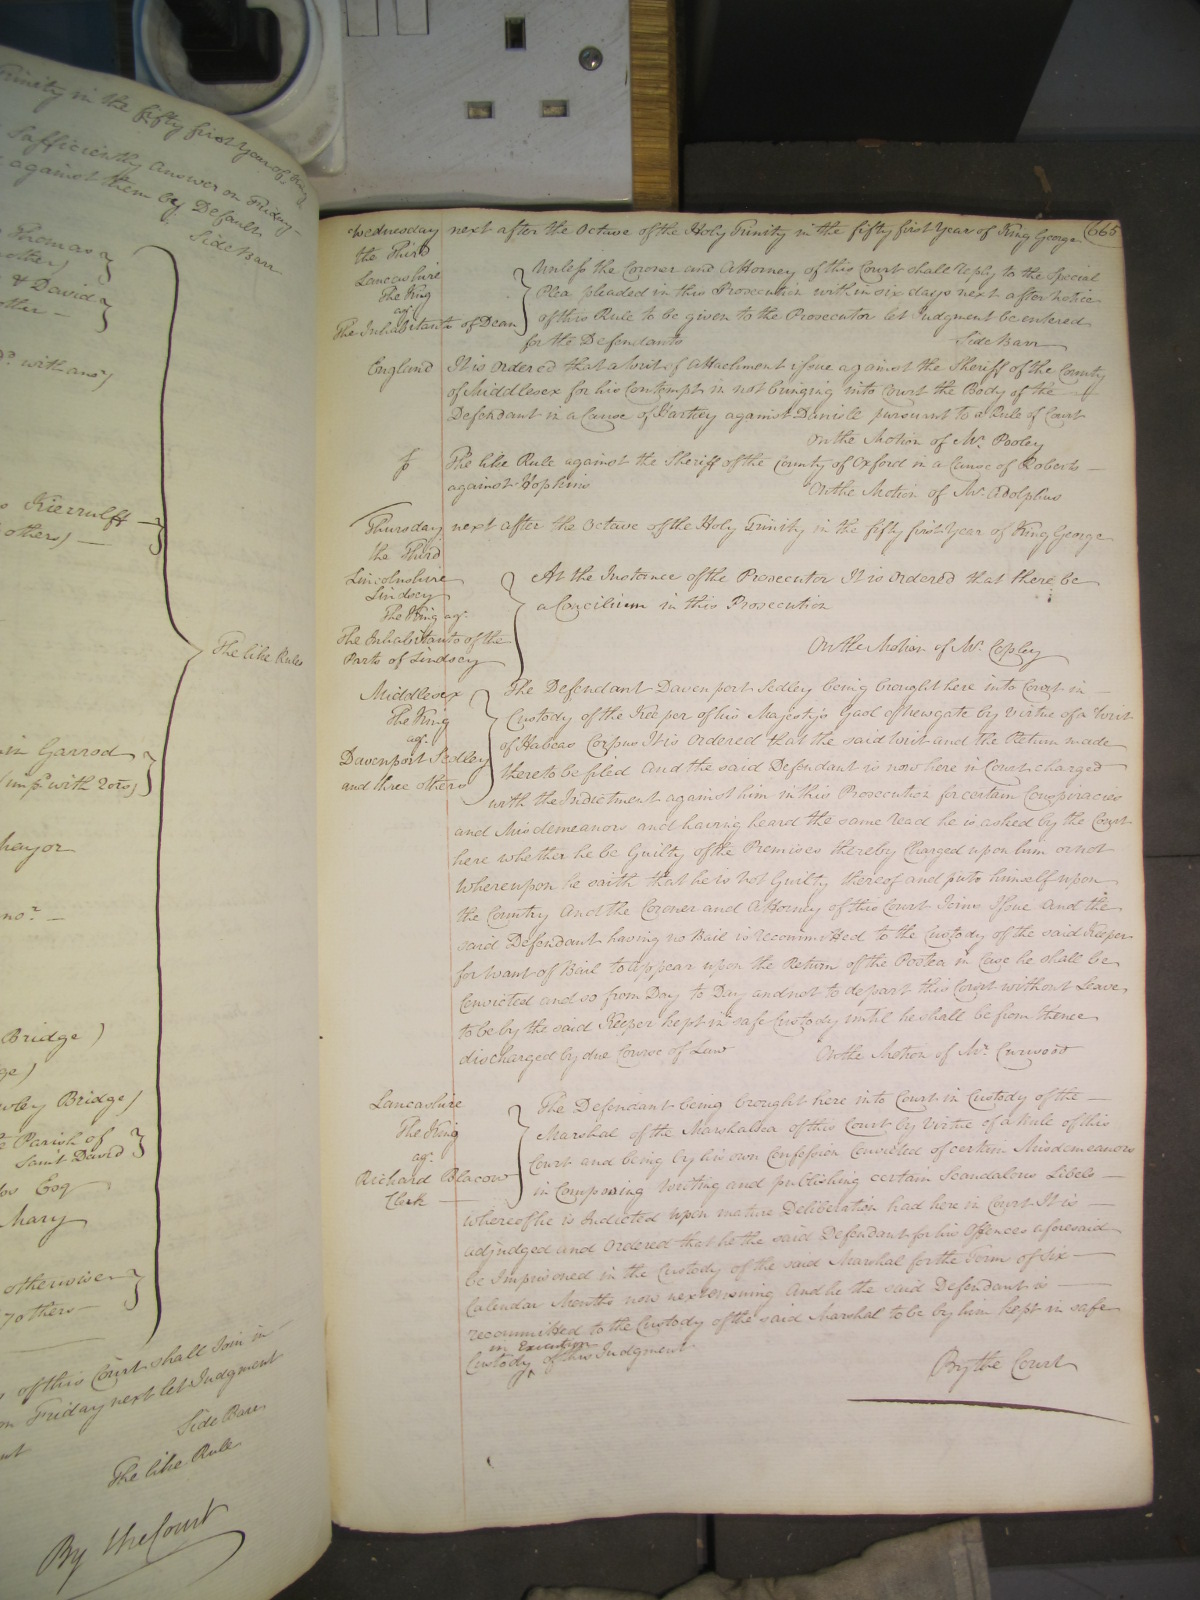 Trinity in the fifty first Year of King
Sufficiently Answer on Friday
against them by Default
Side Barr
Thomas
another)
& David
other —
with ano.r)
Kierrulff
others) —
The like Rules
in Garrod
(imp. with 2 ors)
ano.r —
Bridge )
Bridge)
Parish of
Saint David
Esq
Mary
otherwise
7 others —
of this Court shall Join in
on Friday next let Judgment
Side Barr
The like Rule
By the Court
Wednesday next after the Octave of the Holy Trinity in the fifty first Year of King George 665
the Third
Lancashire
The King
ag.t
The Inhabitants of Dean
Unless the Coroner and Attorney of this Court shall reply to the Special
Plea pleaded in this Prosecution within six days next after notice
of this Rule to be given to the Prosecutor let Judgment be entered
for the Defendants Side Barr
England It is ordered that a Writ of Attachment issue against the Sheriff of the County
of Middlesex for his Contempt in not bringing into Court the Body of the
Defendant in a Cause of Hartley against Daniele pursuant to a Rule of Court
On the Motion of Mr. Pooley
The like Rule against the Sheriff of the County of Oxford in a Cause of Roberts —
against Hopkins On the Motion of Mr. Adolphus
Thursday next after the Octave of the Holy Trinity in the fifty first Year of King George
the Third
Lincolnshire
Lindsey
The King ag.t
The Inhabitants of the
Parts of Lindsey
At the Instance of the Prosecutor It is Ordered that there be
a Concilium in this Prosecution
On the Motion of Mr. Copley
Middlesex
The King
ag.t
Davenport Sedley
and three others
The Defendant Davenport Sedley being brought here into Court in
Custody of the Keeper of his Majesty's Gaol of Newgate by Virtue of a Writ
of Habeas Corpus It is Ordered that the said Writ and the Return made
thereto be filed And the said Defendant is now here in Court charged
with the Indictment against him in this Prosecution for certain Conspiracies
and Misdemeanors and having heard the same read he is asked by the Court
here whether he be Guilty of the Premises thereby Charged upon him or not
Whereupon he saith that he is Not Guilty thereof and puts himself upon
the Country And the Coroner and Attorney of this Court Joins Issue And the
said Defendant having no Bail is recommitted to the Custody of the said Keeper
for want of Bail to appear upon the Return of the Postea in Case he shall be
Convicted and so from Day to Day and not to depart this Court without Leave
to be by the said Keeper kept in safe Custody until he shall be from thence
discharged by due Course of Law On the Motion of Mr. Curwood
Lancashire
The King
ag.t
Richard Blacow
Clerk
The Defendant being brought here into Court in Custody of the —
Marshal of the Marshalsea of this Court by Virtue of a Rule of this
Court and being by his own Confession Convicted of certain Misdemeanors
in Composing Writing and publishing certain Scandalous Libels —
whereof he is Indicted Upon mature Deliberation had here in Court It is —
adjudged and Ordered that he the said Defendant for his Offences aforesaid
be Imprisoned in the Custody of the said Marshal for the Term of Six —
Calendar Months now next ensuing And he the said Defendant is —
recommitted to the Custody of the said Marshal to be by him kept in safe
in Execution
Custody ^ of this Judgment
By the Court